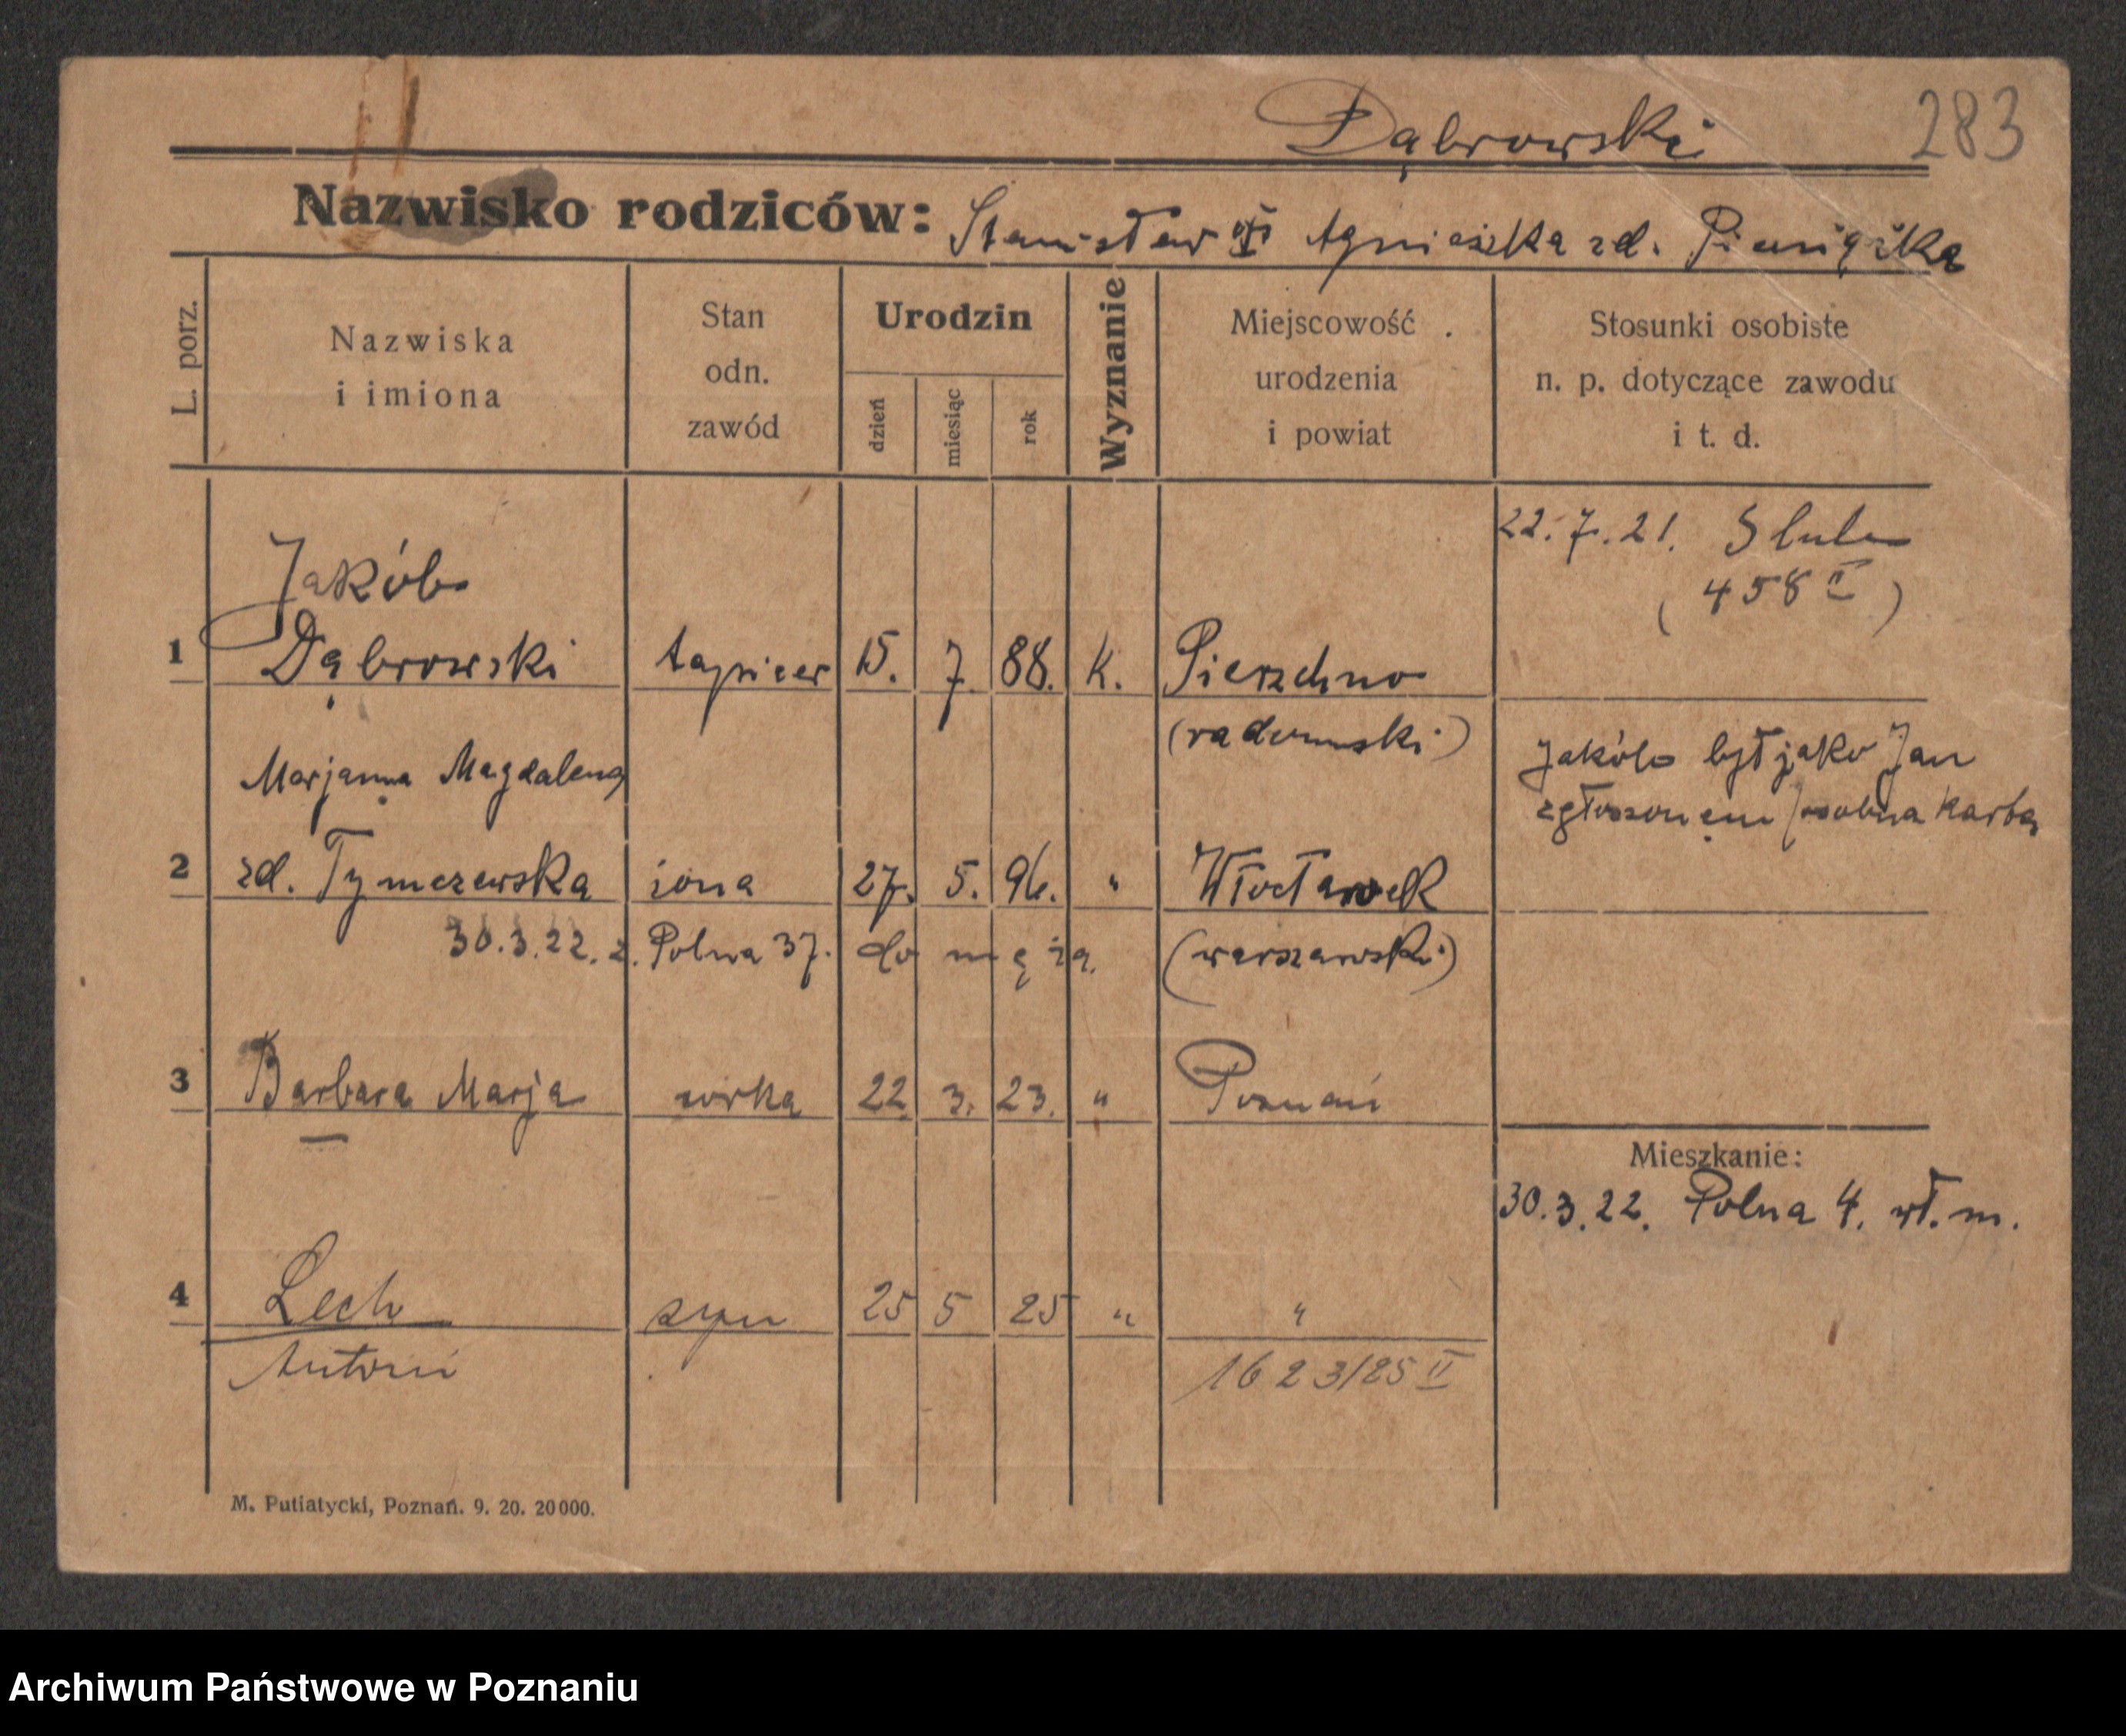 Dąbrowski 283
Nazwisko rodziców: Stanisław Agnieszka zd. Pieniążka
L. porz.
Nazwiska
i imiona
Stan
odn.
zawód
Urodzin
dzień
miesiąc
rok
Wyznanie
Miejscowość
urodzenia
i powiat
Stosunki osobiste
n. p. dotyczące zawodu
i t. d.
22.7.21. Slub
(458 II)
Jakób
1 Dąbrowski tapicer 15. 7. 88. K. Pierzchno
(radomski)
Jakób był jako Jan
zgłoszonem osobna karta
Marjanna Magdalena
2 zd. Tymczewska żona 27. 5. 96. " Włocławek
30.3.22. z. Polna 37. do męża. (warszawski)
3 Barbara Marja córka 22 3. 23. " Poznań
Mieszkanie:
30.3.22. Polna 4. wł. m.
4 Lech syn 25 5 25 " "
Antoni 1623/25 II
M. Putiatycki, Poznań. 9. 20. 20000.
Archiwum Państwowe w Poznaniu